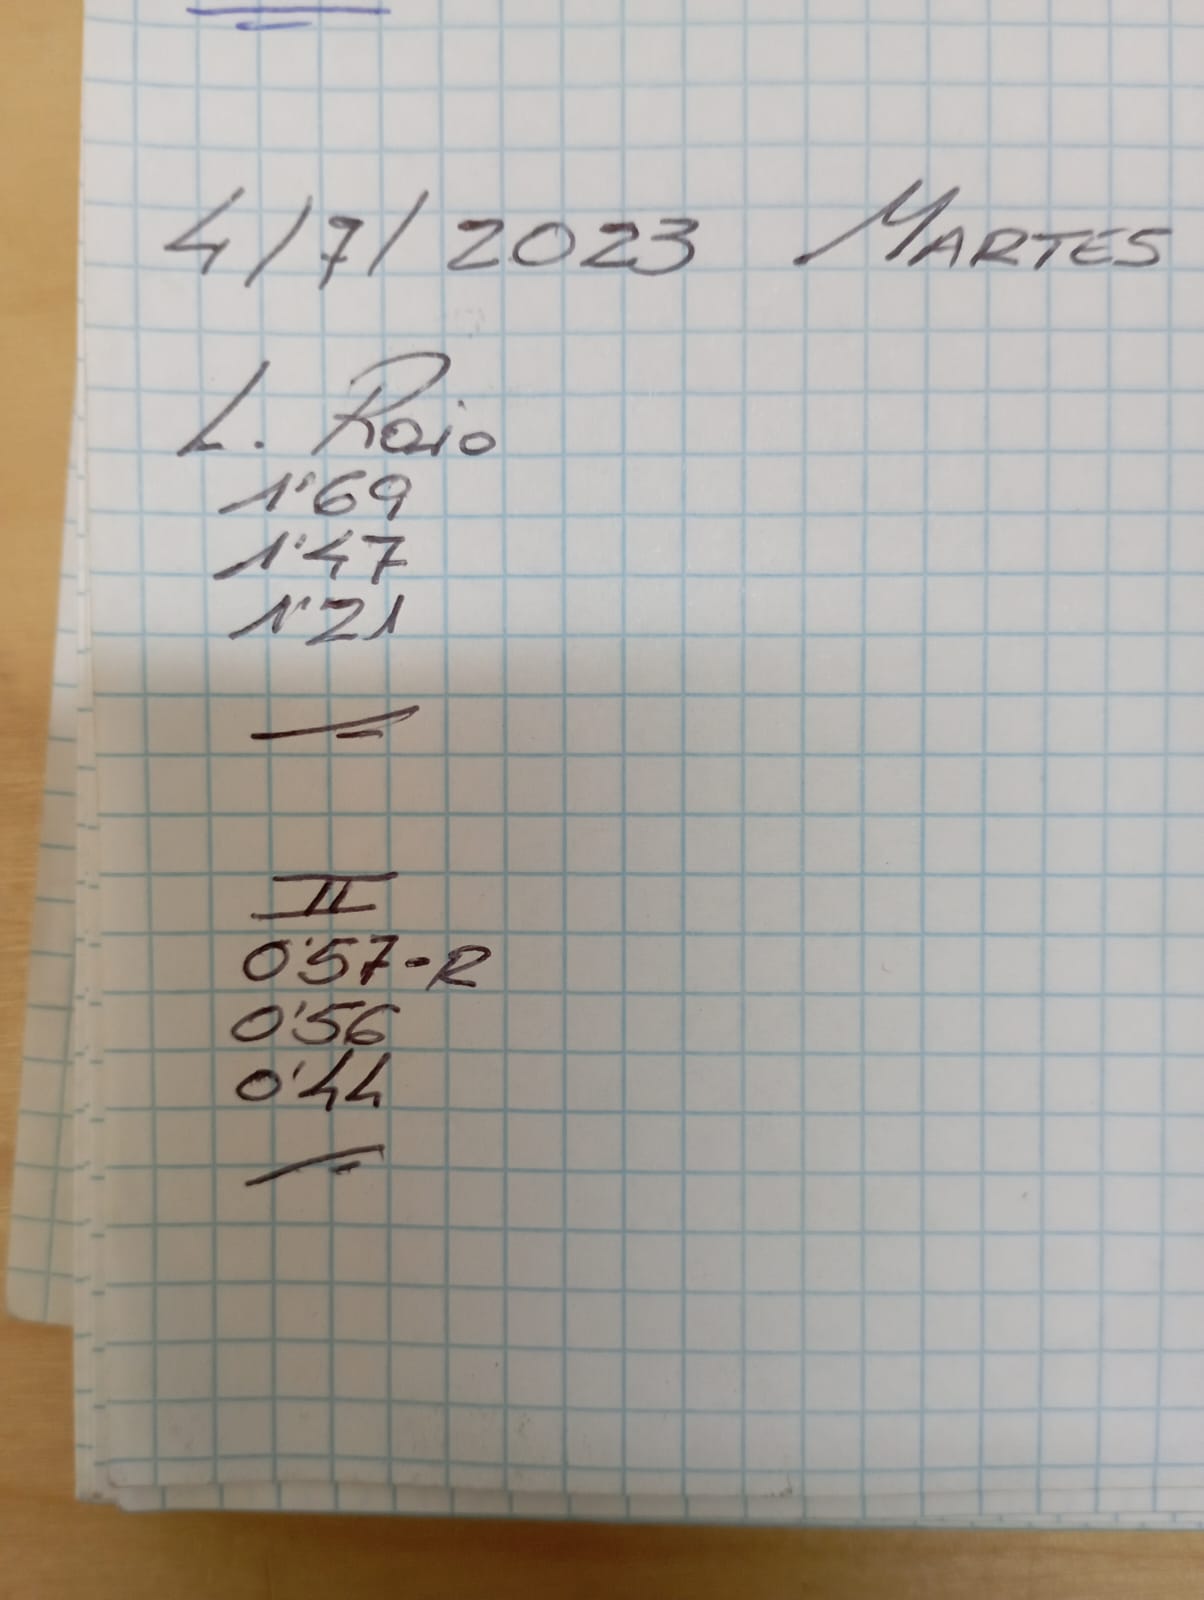 4/7/2023 MARTES
L. Roio
1'69
1'47
1'21
II
0'57-R
0'56
0'44